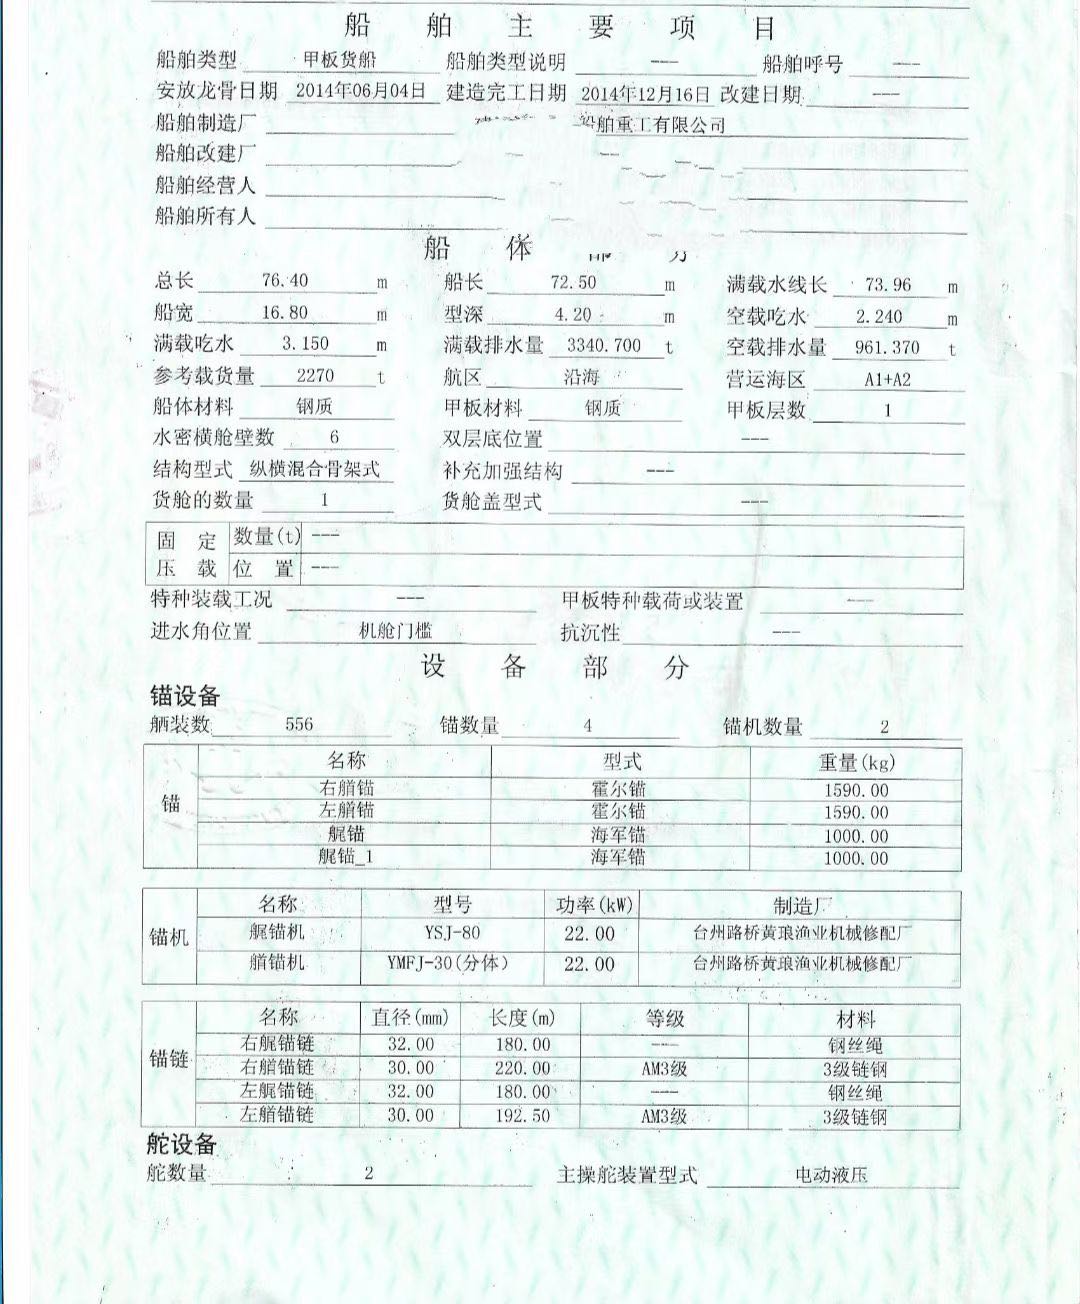 船舶主要项目
船舶类型 甲板货船 船舶类型说明 --- 船舶呼号 ---
安放龙骨日期 2014年06月04日 建造完工日期 2014年12月16日 改建日期 ---
船舶制造厂 船舶重工有限公司
船舶改建厂
船舶经营人
船舶所有人
船体部分
总长 76.40 m 船长 72.50 m 满载水线长 73.96 m
船宽 16.80 m 型深 4.20 m 空载吃水 2.240 m
满载吃水 3.150 m 满载排水量 3340.700 t 空载排水量 961.370 t
参考载货量 2270 t 航区 沿海 营运海区 A1+A2
船体材料 钢质 甲板材料 钢质 甲板层数 1
水密横舱壁数 6 双层底位置 ---
结构型式 纵横混合骨架式 补充加强结构 ---
货舱的数量 1 货舱盖型式 ---
固定 数量(t) ---
压载 位置 ---
特种装载工况 --- 甲板特种载荷或装置 ---
进水角位置 机舱门槛 抗沉性 ---
设备部分
锚设备
舾装数 556 锚数量 4 锚机数量 2
名称 型式 重量(kg)
锚
右艏锚 霍尔锚 1590.00
左艏锚 霍尔锚 1590.00
艉锚 海军锚 1000.00
艉锚_1 海军锚 1000.00
名称 型号 功率(kW) 制造厂
锚机
艉锚机 YSJ-80 22.00 台州路桥黄琅渔业机械修配厂
艏锚机 YMFJ-30(分体) 22.00 台州路桥黄琅渔业机械修配厂
名称 直径(mm) 长度(m) 等级 材料
锚链
右艉锚链 32.00 180.00 --- 钢丝绳
右艏锚链 30.00 220.00 AM3级 3级链钢
左艉锚链 32.00 180.00 --- 钢丝绳
左艏锚链 30.00 192.50 AM3级 3级链钢
舵设备
舵数量 2 主操舵装置型式 电动液压